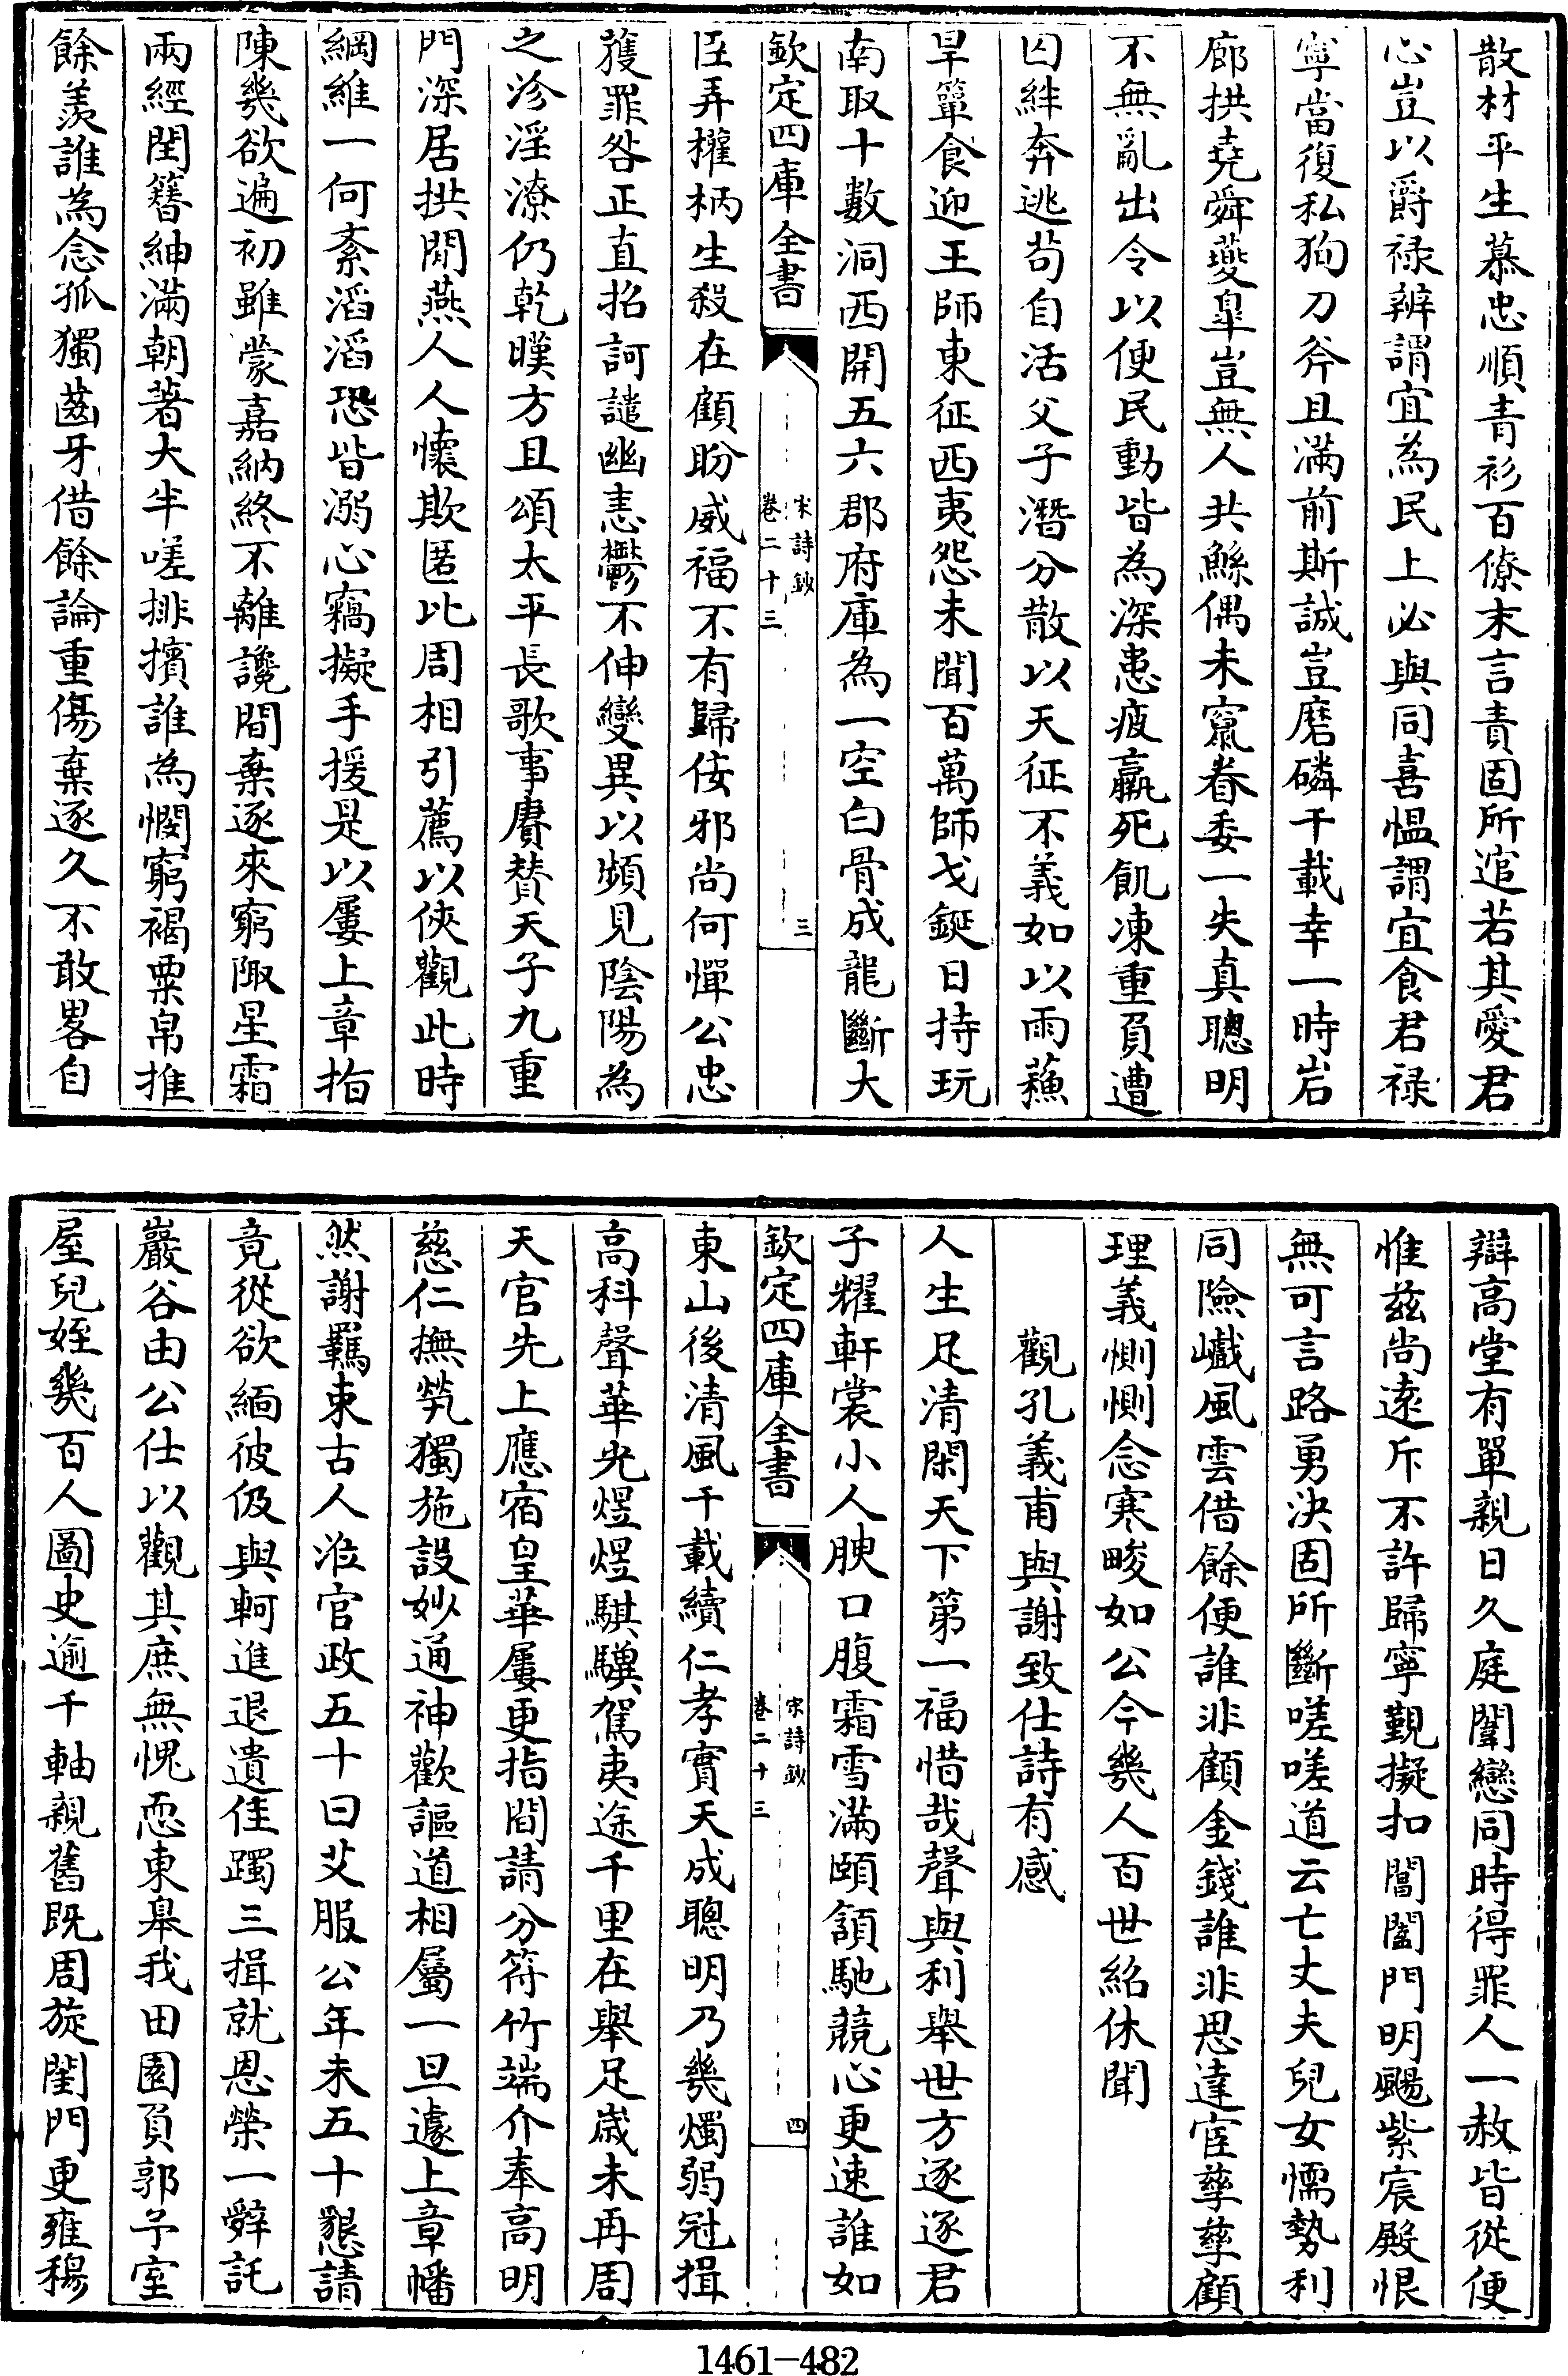 散材平生慕忠順青衫百僚末言責固所逭若其愛君
心豈以爵祿辨謂宜為民上必與同喜愠謂宜食君祿
寧當復私狥刀斧且滿前斯誠豈磨磷千載幸一時岩
廊拱堯舜夔臯豈無人共鯀偶未竄眷委一失真聰明
不無亂出令以便民動皆為深患疲羸死飢凍重負遭
囚絆奔逃茍自活父子潛分散以天征不義如以雨蘓
旱簞食迎王師東征西夷怨未聞百萬師戈鋋日持玩
南取十數洞西開五六郡府庫為一空白骨成龍斷大
欽定四庫全書
宋詩鈔
卷二十三
三
臣弄權柄生殺在顧盼威福不有歸佞邪尚何憚公忠
獲罪咎正直招訶譴幽恚鬱不伸變異以頻見陰陽為
之沴淫潦仍乾暵方且頌太平長歌事賡贊天子九重
門深居拱閒燕人人懷欺匿比周相引薦以俠觀此時
綱維一何紊滔滔恐皆溺心竊擬手援是以屢上章指
陳幾欲遍初雖蒙嘉納終不離讒間棄逐來窮陬星霜
兩經閏簪紳滿朝著大半嗟排擯誰為憫窮褐粟帛推
餘羨誰為念孤獨齒牙借餘論重傷棄逐久不敢畧自
辯高堂有單親日久庭闈戀同時得罪人一赦皆從便
惟兹尚遠斥不許歸寧覲擬扣閶闔門明颺紫宸殿恨
無可言路勇決固所斷嗟嗟道云亡丈夫兒女懦勢利
同險巇風雲借餘便誰非顧金錢誰非思達宦孳孳顧
理義惻惻念寒畯如公今幾人百世紹休聞
觀孔義甫與謝致仕詩有感
人生足清閑天下第一福惜哉聲與利舉世方逐逐君
子耀軒裳小人腴口腹霜雪滿頤頷馳競心更速誰如
欽定四庫全書
宋詩鈔
卷二十三
四
東山後清風千載續仁孝實天成聰明乃幾燭弱冠揖
高科聲華光煜煜騏驥駕夷途千里在舉足歲未再周
天官先上應宿皇華屢更指閭請分符竹端介奉高明
慈仁撫煢獨施設妙通神歡謳道相屬一旦遽上章幡
然謝羈束古人涖官政五十曰艾服公年未五十懇請
竟從欲緬彼伋與軻進退遺佳躅三揖就恩榮一辭託
巖谷由公仕以觀其庶無愧恧東臯我田園負郭予室
屋兒姪幾百人圖史逾千軸親舊既周旋閨門更雍穆
1461—482